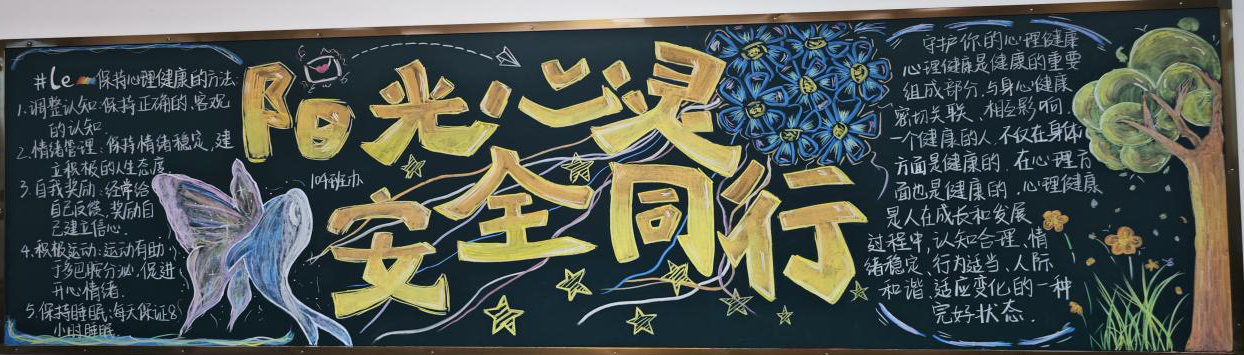 #Le 保持心理健康的方法
1.调整认知:保持正确的、客观
的认知.
2.情绪管理:保持情绪稳定,建
立积极的人生态度
3.自我奖励:经常给
自己反馈、奖励自
己建立信心.
4.积极运动:运动有助
于多巴胺分泌,促进
开心情绪.
5.保持睡眠:每天保证8
小时睡眠
阳光心灵
104班办
安全同行
守护你的心理健康
心理健康是健康的重要
组成部分,与身心健康
密切关联、相互影响
一个健康的人,不仅在身体
方面是健康的,在心理方
面也是健康的,心理健康
是人在成长和发展
过程中,认知合理、情
绪稳定、行为适当、人际
和谐、适应变化的一种
完好状态.